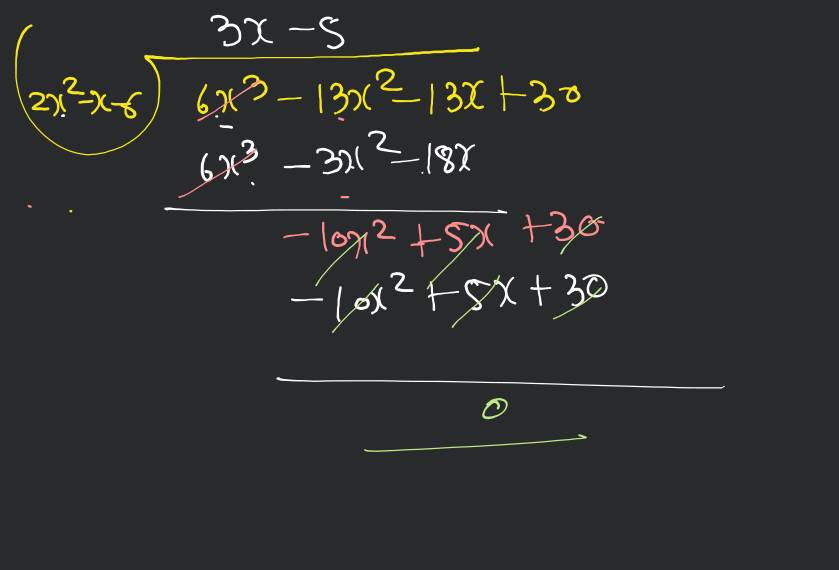 3x - 5
2x² - x - 6 6x³ - 13x² - 13x + 30
6x³ - 3x² - 18x
- 10x² + 5x + 30
- 10x² + 5x + 30
0